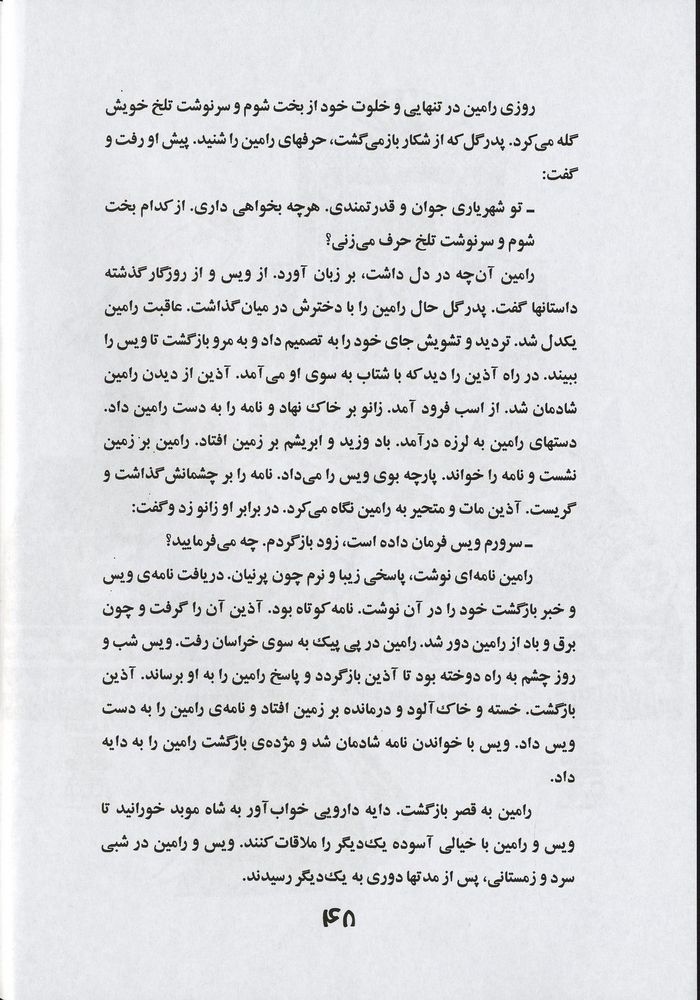 روزی رامین در تنهایی و خلوت خود از بخت شوم و سرنوشت تلخ خویش
گله می‌کرد. پدرگل که از شکار بازمی‌گشت، حرفهای رامین را شنید. پیش او رفت و
گفت:
ـ تو شهریاری جوان و قدرتمندی. هرچه بخواهی داری. از کدام بخت
شوم و سرنوشت تلخ حرف می‌زنی؟
رامین آن‌چه در دل داشت، بر زبان آورد. از ویس و از روزگار گذشته
داستانها گفت. پدرگل حال رامین را با دخترش در میان گذاشت. عاقبت رامین
یکدل شد. تردید و تشویش جای خود را به تصمیم داد و به مرو بازگشت تا ویس را
ببیند. در راه آذین را دید که با شتاب به سوی او می‌آمد. آذین از دیدن رامین
شادمان شد. از اسب فرود آمد. زانو بر خاک نهاد و نامه را به دست رامین داد.
دستهای رامین به لرزه درآمد. باد وزید و ابریشم بر زمین افتاد. رامین بر زمین
نشست و نامه را خواند. پارچه بوی ویس را می‌داد. نامه را بر چشمانش گذاشت و
گریست. آذین مات و متحیر به رامین نگاه می‌کرد. در برابر او زانو زد و گفت:
ـ سرورم ویس فرمان داده است، زود بازگردم. چه می‌فرمایید؟
رامین نامه‌ای نوشت، پاسخی زیبا و نرم چون پرنیان. دریافت نامه‌ی ویس
و خبر بازگشت خود را در آن نوشت. نامه کوتاه بود. آذین آن را گرفت و چون
برق و باد از رامین دور شد. رامین در پی پیک به سوی خراسان رفت. ویس شب و
روز چشم به راه دوخته بود تا آذین بازگردد و پاسخ رامین را به او برساند. آذین
بازگشت. خسته و خاک‌آلود و درمانده بر زمین افتاد و نامه‌ی رامین را به دست
ویس داد. ویس با خواندن نامه شادمان شد و مژده‌ی بازگشت رامین را به دایه
داد.
رامین به قصر بازگشت. دایه دارویی خواب‌آور به شاه موبد خورانید تا
ویس و رامین با خیالی آسوده یک‌دیگر را ملاقات کنند. ویس و رامین در شبی
سرد و زمستانی، پس از مدتها دوری به یک‌دیگر رسیدند.
۱۶۸